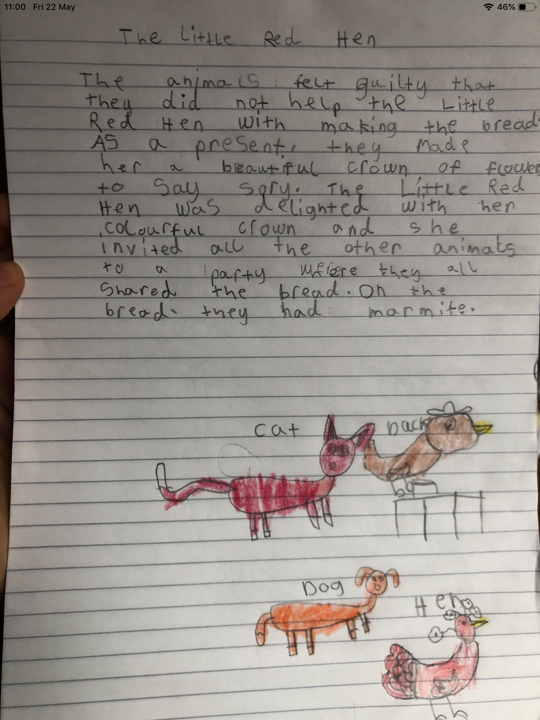 11:00 Fri 22 May 46%
The Little Red Hen
The animals felt guilty that
they did not help the Little
Red Hen with making the bread.
As a present, they made
her a beautiful crown of flowers
to say sory. The Little Red
Hen was delighted with her
colourful crown and she
invited all the other animals
to a party where they all
shared the bread. On the
bread. they had marmite.
cat Duck
Dog
Hen